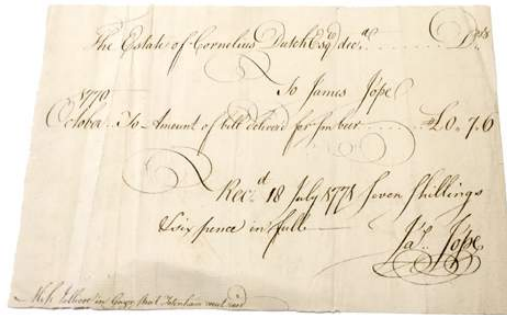 The Estate of Cornelius Dutch Esqr. decd. Dr.
To James Jope
1770
October To Amount of bill delived for £0. 7. 6
Recd. 18 July 1771 Seven Shillings
& six pence in full
Jas. Jope
in Street